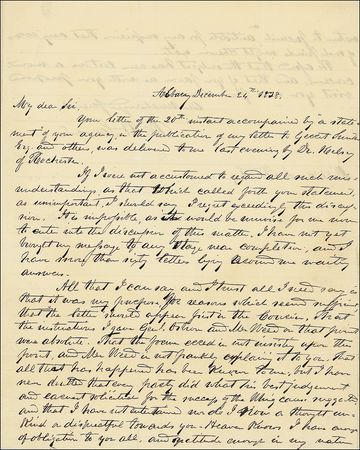 Albany December 24th 1838.
My dear Sir,
Your letter of the 20th instant accompanied by a state-
ment of your agency in the publication of my letter to Gerrit Smith
Esq and others, was delivered to me last evening by Dr. Kelsey
of Rochester.
If I were not accustomed to regard all such mis-
understandings, as that which called forth your statement,
as unimportant, I should say I regret exceedingly this discus-
sion. It is impossible, as it would be unwise for me now
to enter into the discussion of this matter. I have not yet
brought my message to any stage near completion, and I
have more than sixty letters lying around me waiting
answers.
All that I can say and I trust all I need say is
that it was my purpose for reasons which seemed sufficient
that the letter should appear first in the Courier. That
the instructions I gave Genl. and Mr Weed on that point
were absolute. That the former did not insist upon the
point, and Mr Weed not frankly explaining it to you. That
all that has happened has been known to me, but I have
never doubted that any party did what his best judgement
and earnest solicitude for the success of the Whig cause suggested
and that I have not entertained nor do I now a thought un-
kind or disrespectful towards you. Heaven knows I have enough
of obligation to you all, and gratitude enough in my nature